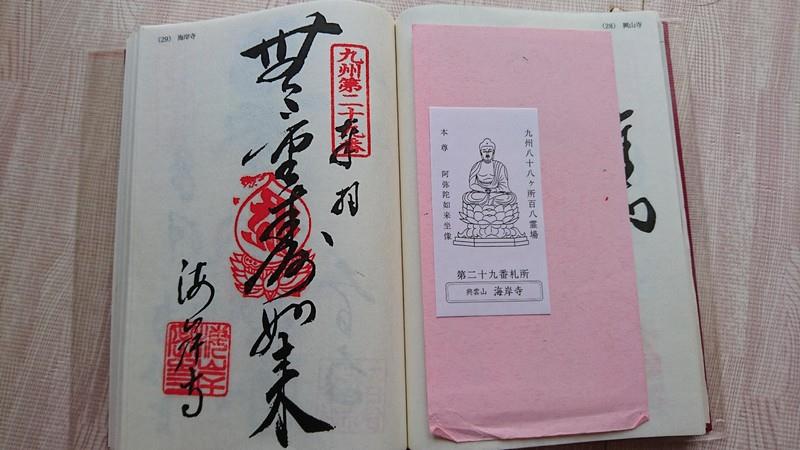 （29） 海岸寺
九州第二十九番
奉拝
無量壽如来
海岸寺
（28） 興山寺
九州八十八ヶ所百八霊場
本尊 阿弥陀如来坐像
第二十九番札所
興雲山 海岸寺